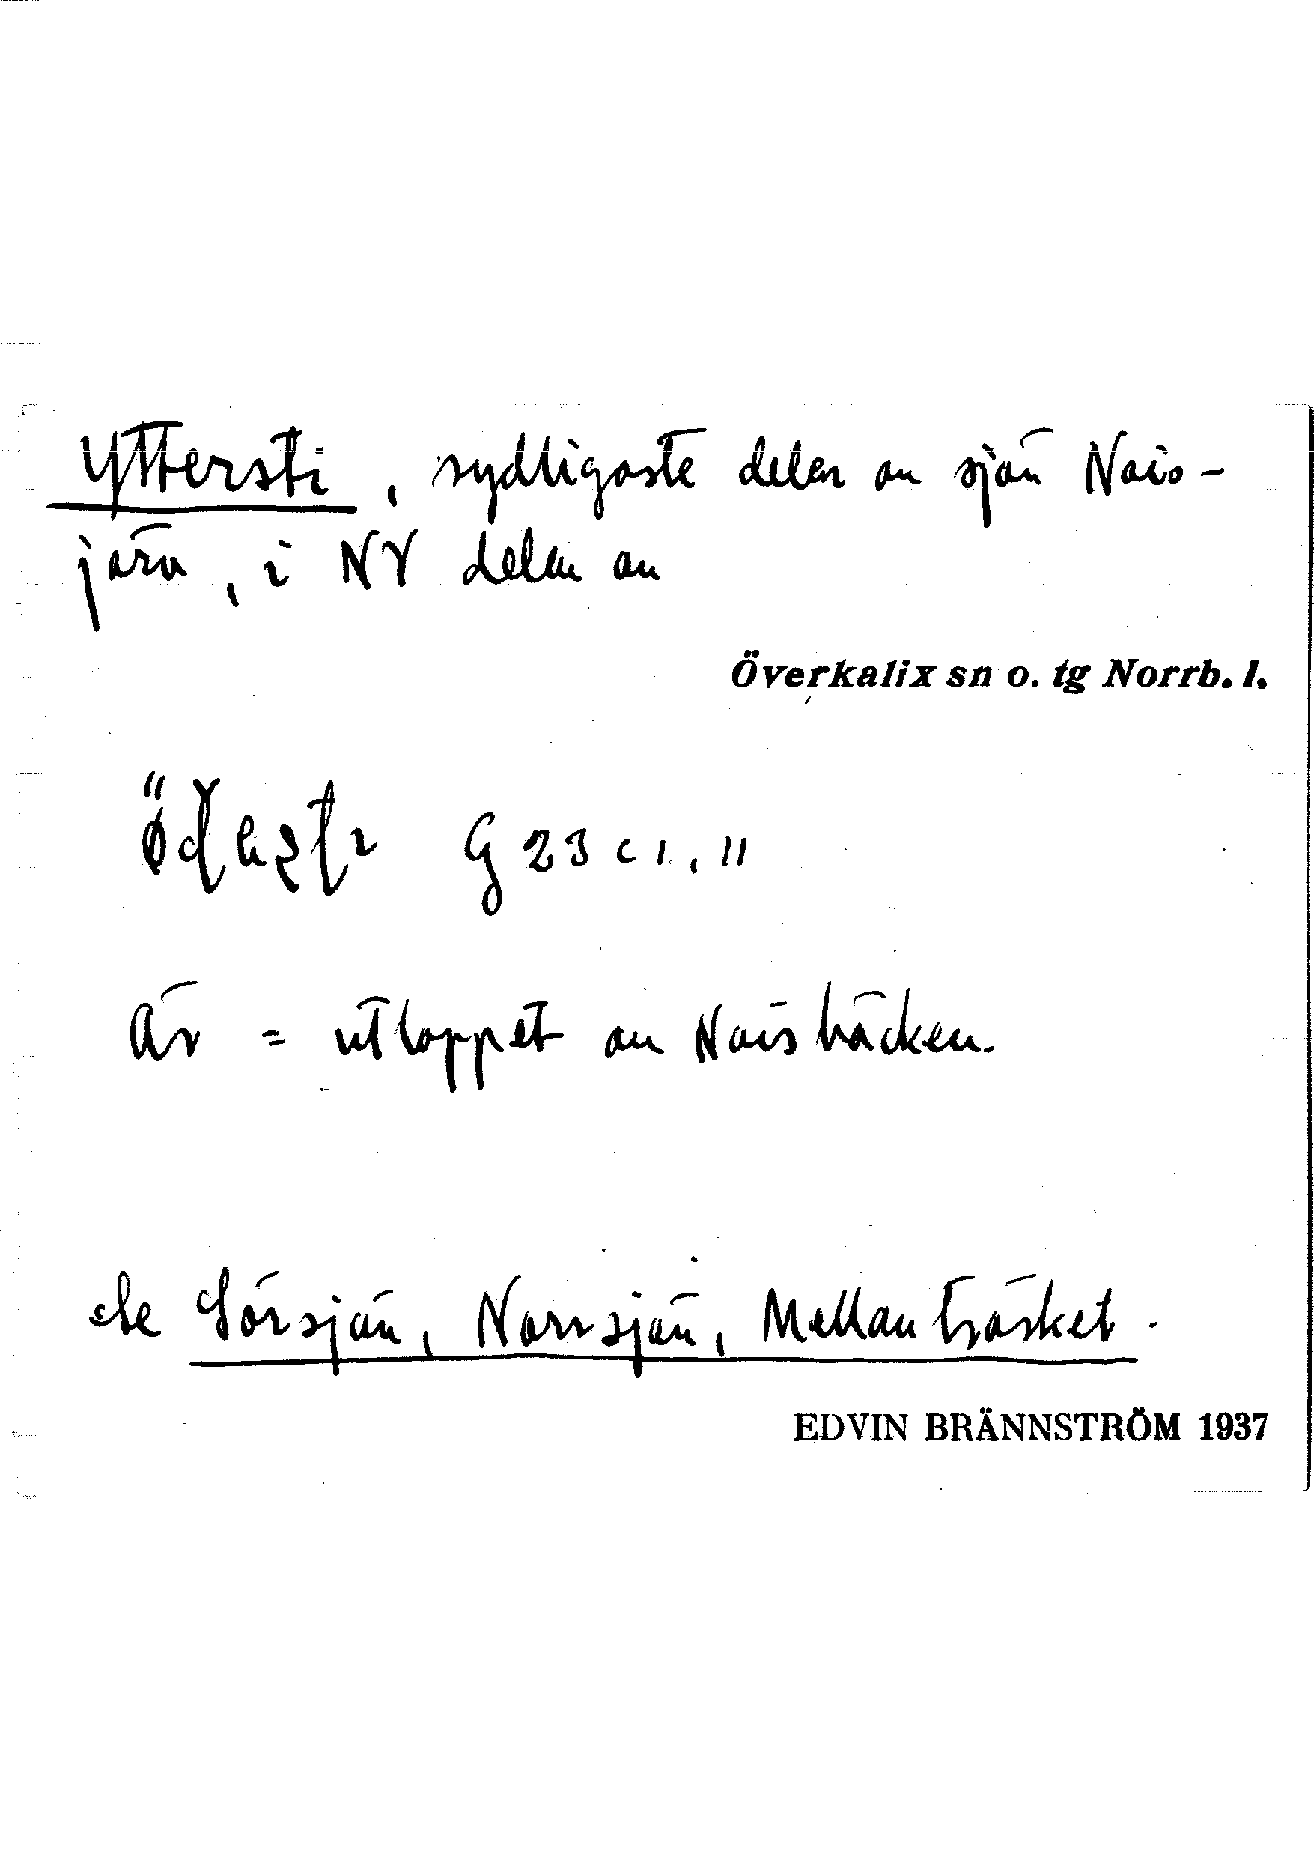 Yttersti, sydligaste delen av sjön Nais-
järv, i NV delen av
Överkalix sn o. tg Norrb. l.
G 23 c 1, 11
Är = utloppet av Naisbäcken.
Se Sörsjön, Norrsjön, Mellanträsket.
EDVIN BRÄNNSTRÖM 1937